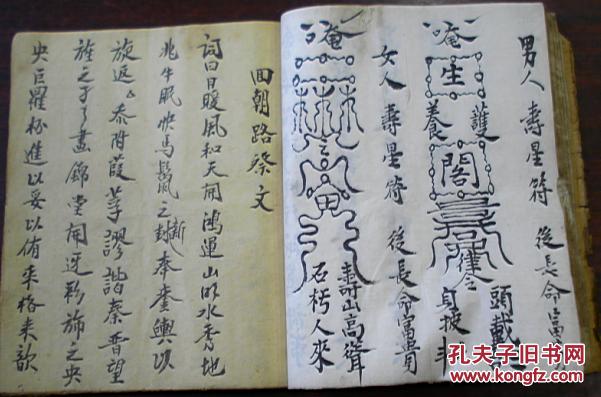 男人 壽星符 後長命富
唵
生
護
養
閣
頭載
身披
女人 壽星符 後長命富貴
唵
壽山高聳
石朽人來
回朝路祭文
詞曰日暖風和天開鴻運山明水秀地
兆牛眠快馬鬣之新封奉奎輿以
旋返忝附葭莩謬諧秦晉望
旌之子了畫錦堂開迓彩旆之央
央巨羅粉進以妥以侑來格來歆
孔夫子旧书网
www.kongfz.com